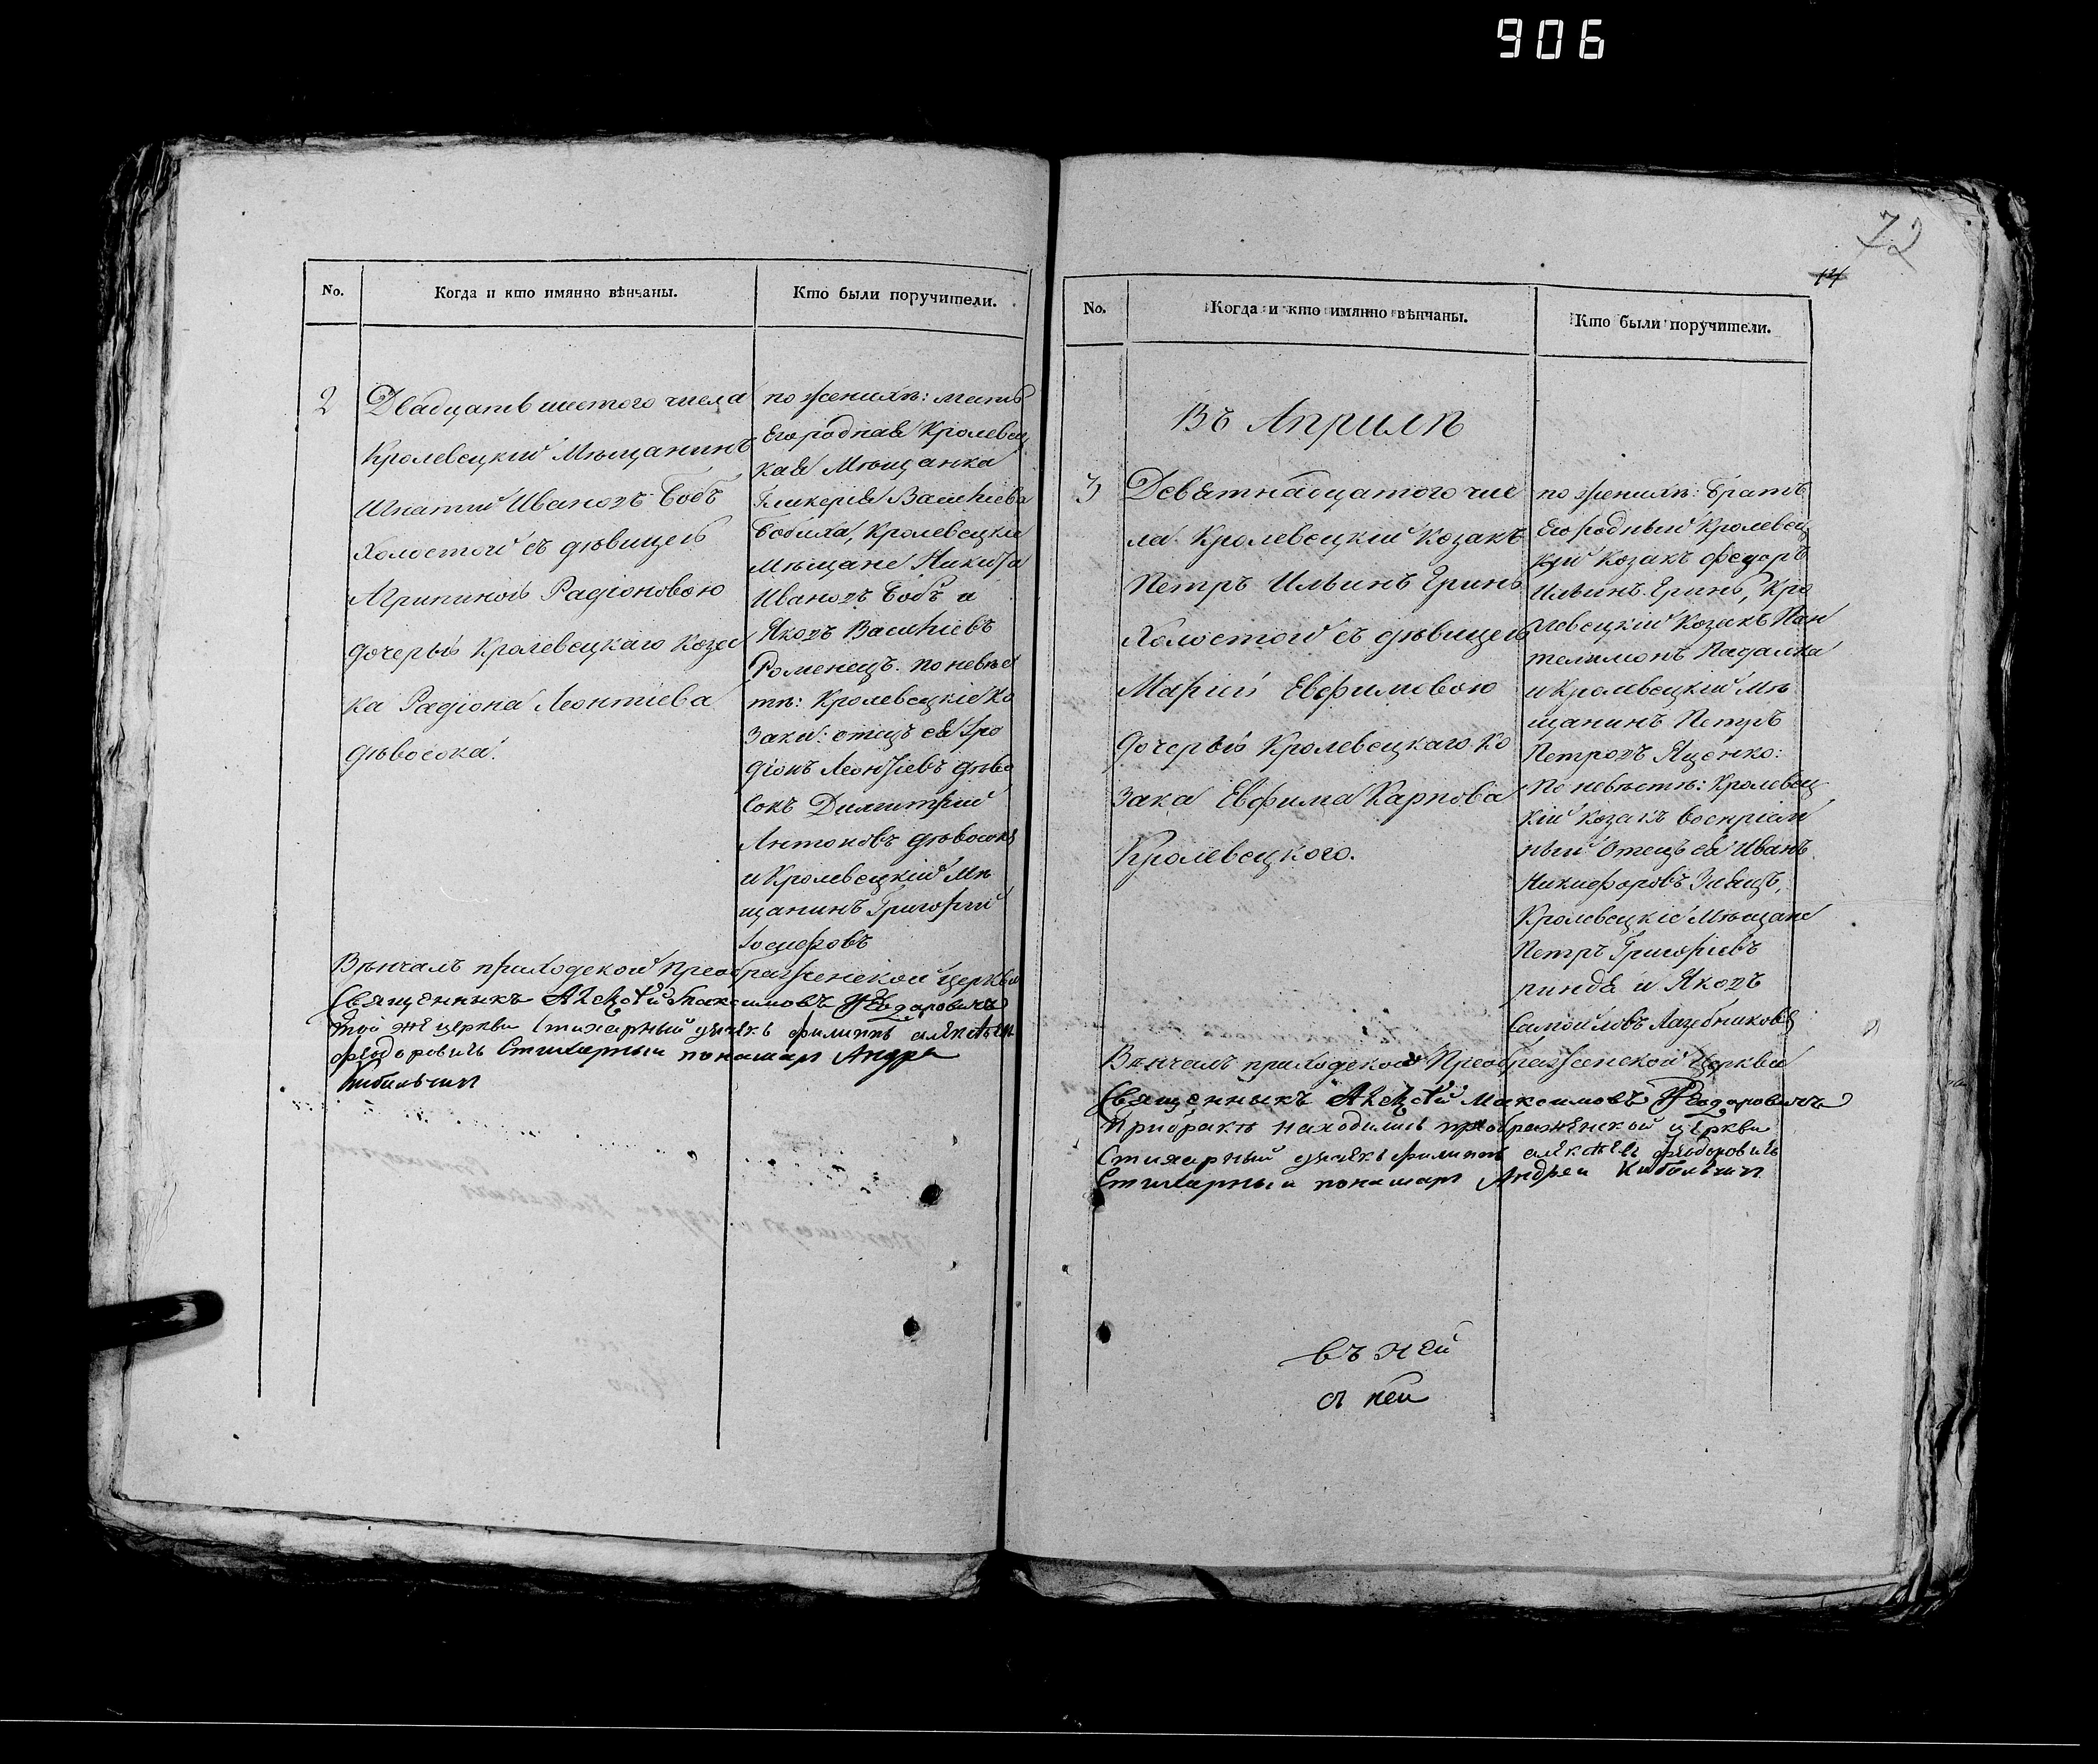 906
No.
Когда и кто имянно вѣнчаны.
Кто были поручители.
2
Двадцать шестого числа
Кролевецкий Мѣщанинъ
Игнатий Ивановъ Бобъ
Холостой съ дѣвицею
Агрипиною Радіоновою
дочерью Кролевецкаго Коза
ка Радіона Леонтіева
дѣвосока.
по женихѣ: мать
Его родная Кролевец
кая Мѣщанка
Гликерія Василіева
Бобиха, Кролевецкіе
мѣщане Никита
Ивановъ Бобъ и
Яковъ Василіевъ
Роменецъ. по невѣс
тѣ: Кролевецкіе Ко
заки: отецъ ея Иро
діонъ Леонтіевъ дѣво
сокъ Димитрий
Антоновъ дѣвосокъ
и Кролевецкій Мѣ
щанинъ Григорий
Іосифовъ
Вѣнчалъ приходской Преображенской Церкви
Священникъ Алексѣй Максимовъ Феодоровичъ
той же церкви Стихарный дячекъ филиппъ алексѣев
феодоровичь Стихарный понамарь Андре
Кибальчич
72
14
No.
Когда и кто имянно вѣнчаны.
Кто были поручители.
Въ Априлѣ
3
Девятнадцатого чис
ла Кролевецкій Козакъ
Петръ Ильинъ Еринъ
Холостой съ дѣвицею
Маріей Евфимовою
дочерью Кролевецкаго Ко
зака Евфима Карпова
Кролевецкого.
по женихѣ: братъ
Его родный Кролевец
кій Козакъ федоръ
Ильинъ Еринъ, Кро
левецкій Козакъ Пан
телимонъ Падалка
и Кролевецкий Мѣ
щанинъ Петръ
Петровъ Яценко:
По невѣстѣ: Кролевец
кій Козакъ воспріем
ный Отецъ ея Иванъ
Никифоровъ
Кролевецкіе Мѣщане
Петръ Григоріевъ
ринда и Яковъ
Самойловъ Лазебниковъ
Вѣнчалъ приходской Преображенской Церкви
Священникъ Алексѣй Максимовъ Феодоровичъ
При бракѣ находились преображенской церкви
Стихарный дячекъ филиппъ алексѣевъ феодоровичь
Стихарный понамарь Андрей Кибальчич
въ ней
съ ней